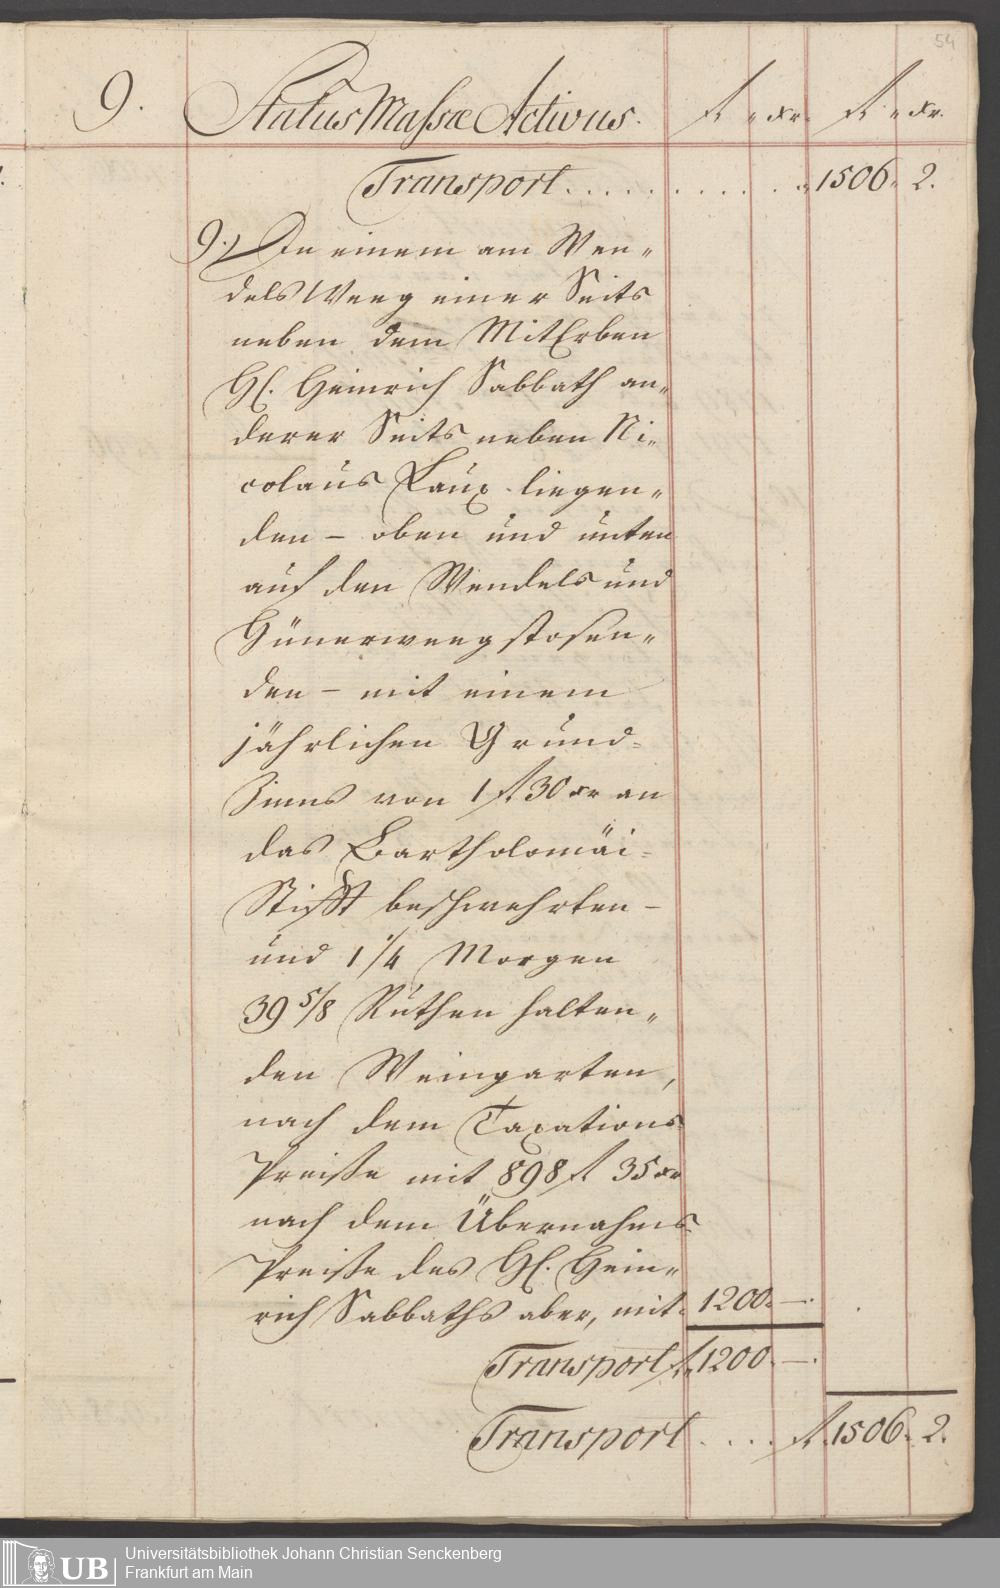 54
9. Status Massæ Activus. fl " xr. fl " xr.
Transport . . . . . . . . . . " 1506 " 2.
9.) In einem am Wen"
dels Weeg einer Seits
neben dem MitErben
H. Heinrich Sabbath an"
derer Seits neben Ni"
colaus Laux liegen"
den – oben und unten
auf den Wendels und
Hünerweeg stosen"
den – mit einem
jährlichen Grund-
Zinns von 1 fl 30 xr an
das Bartholomäi-
Stifft beschwehrten –
und 1 1/4 Morgen
39 5/8 Ruthen halten"
den Weingarten,
nach dem Taxations
Preiße mit 898 fl 35 xr
nach dem Übernahms
Preiße des H. Hein"
rich Sabbaths aber, mit " 1200 " —.
Transport fl " 1200 " —.
Transport . . . . fl . 1506 " 2.
UB Universitätsbibliothek Johann Christian Senckenberg
Frankfurt am Main